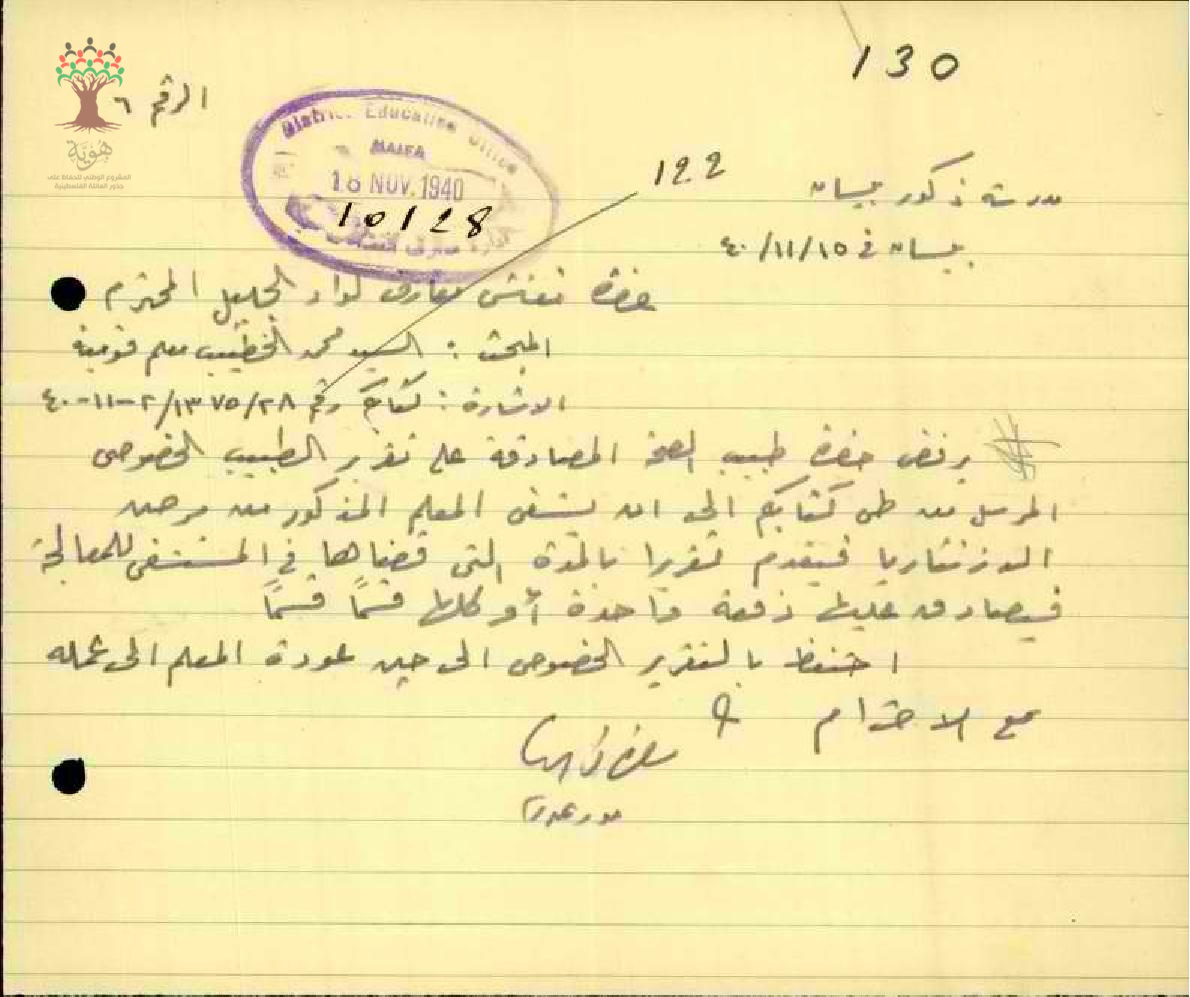 130
الرقم ٦
هوية
المشروع الوطني للحفاظ على
جذور العائلة الفلسطينية
District Education Office
HAIFA
18 NOV. 1940
10128
122
مدرسة ذكور بيسان
بيسان في ١٥/١١/٤٠
حضرة مفتش معارف لواء الجليل المحترم
المبحث : السيد محمد الخطيب معلم قومية
الاشارة : كتابكم رقم ٢٨/١٣٧٥/٢-١١-٤٠
يرفض حضرة طبيب الصحة المصادقة على تقرير الطبيب الخصوصي
المرسل من طي كتابكم الى ان يشفى المعلم المذكور من مرض
الدزنتاريا فيقدم تقريرا بالمدة التي قضاها في المستشفى للمعالجة
فيصادق عليها دفعة واحدة أو كلها قسمًا قسمًا
احتفظ بالتقرير الخصوصي الى حين عودة المعلم الى عمله
مع الاحترام